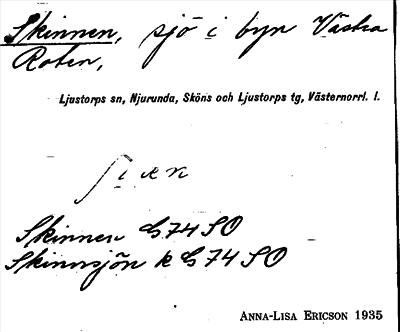 Skinnen, sjö i byn Västra
Roten,
Ljustorps sn, Njurunda, Sköns och Ljustorps tg, Västernorrl. l.
Skinnen G 74 SO
Skinnsjön k G 74 SO
ANNA-LISA ERICSON 1935